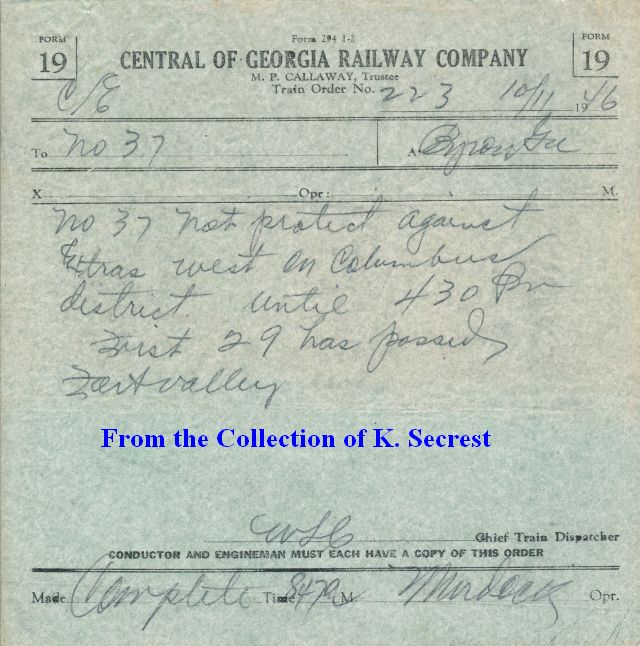 FORM 19
Form 294 1-2
FORM 19
CENTRAL OF GEORGIA RAILWAY COMPANY
M. P. CALLAWAY, Trustee
C/E Train Order No. 223 10/11 1946
To No 37 At Byron Ga
X Opr: M.
No 37 not protect against
Extras west on Columbus
district until 430 Pm
First 29 has passed
Fort valley
From the Collection of K. Secrest
WLC Chief Train Dispatcher
CONDUCTOR AND ENGINEMAN MUST EACH HAVE A COPY OF THIS ORDER
Made Complete Time 847a M. Murdock Opr.